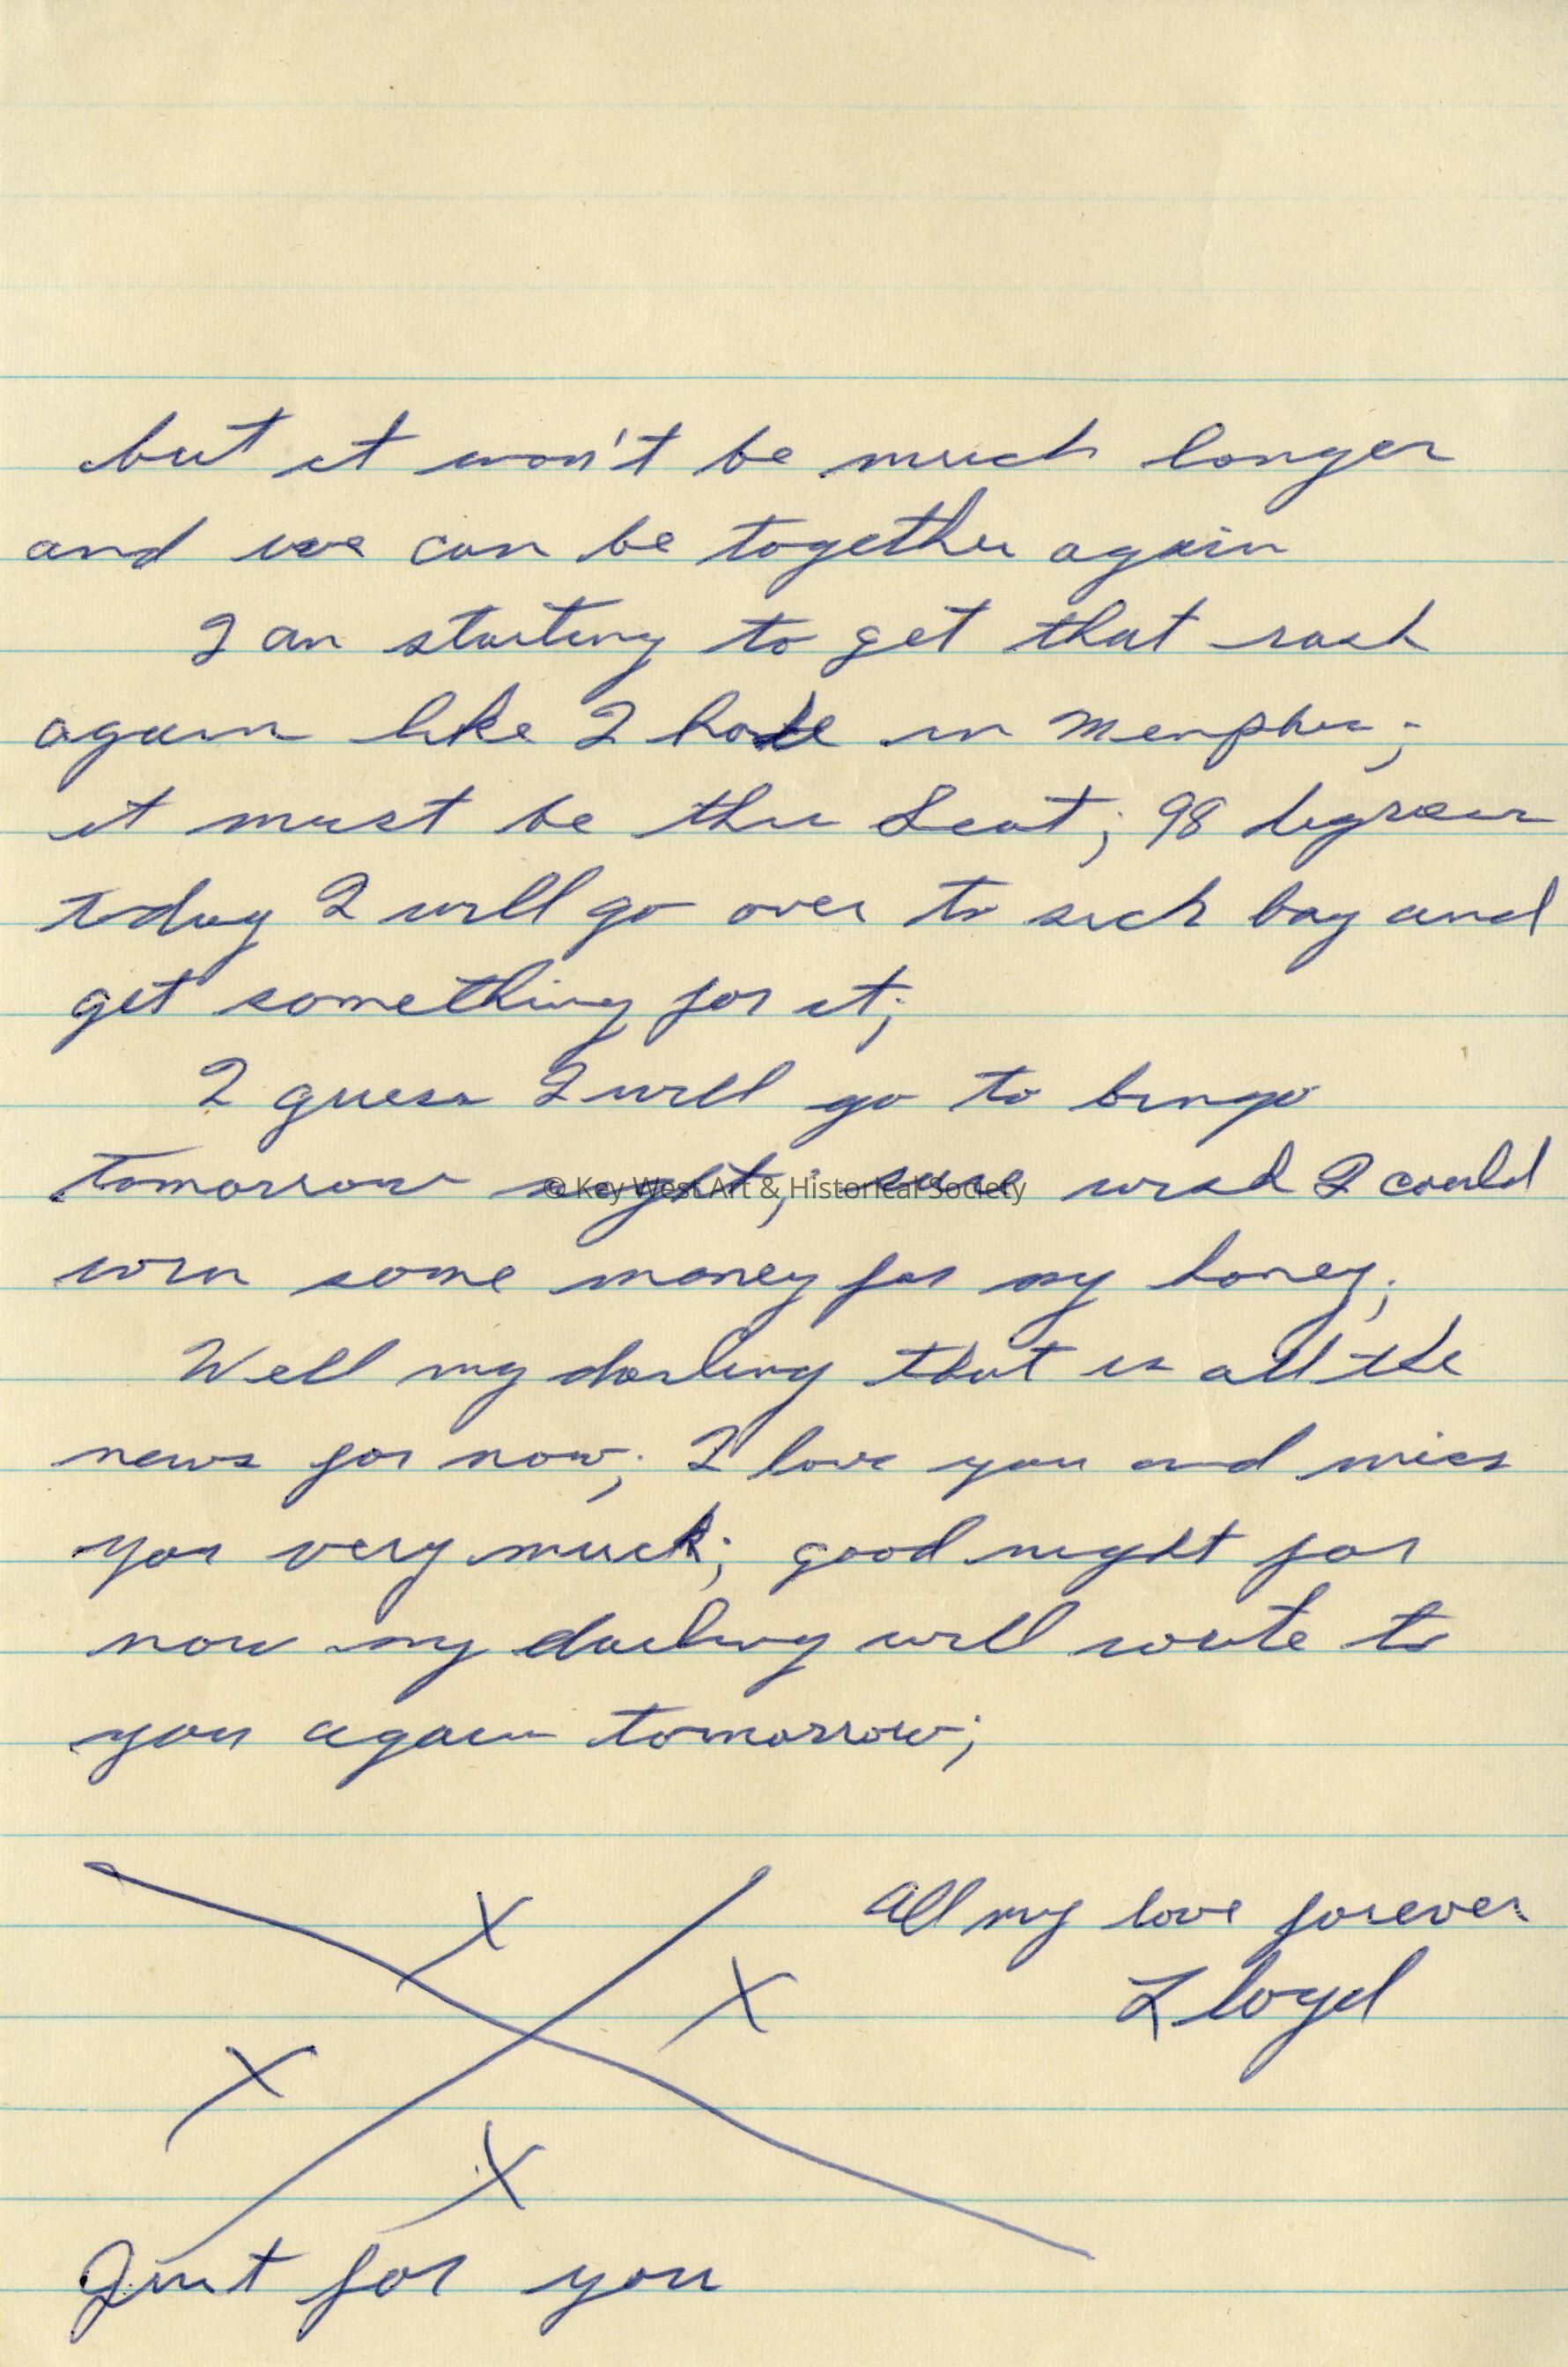 but it won't be much longer
and we can be together again
I am starting to get that rash
again like I have in Memphis;
it must be the heat; 98 degrees
today I will go over to sick bay and
get something for it;
I guess I will go to bingo
tomorrow night; sure wish I could
© Key West Art & Historical Society
win some money for my honey;
Well my darling that is all the
news for now; I love you and miss
you very much; good night for
now my darling will write to
you again tomorrow;
All my love forever
Lloyd
X
X
X
X
X
Just for you